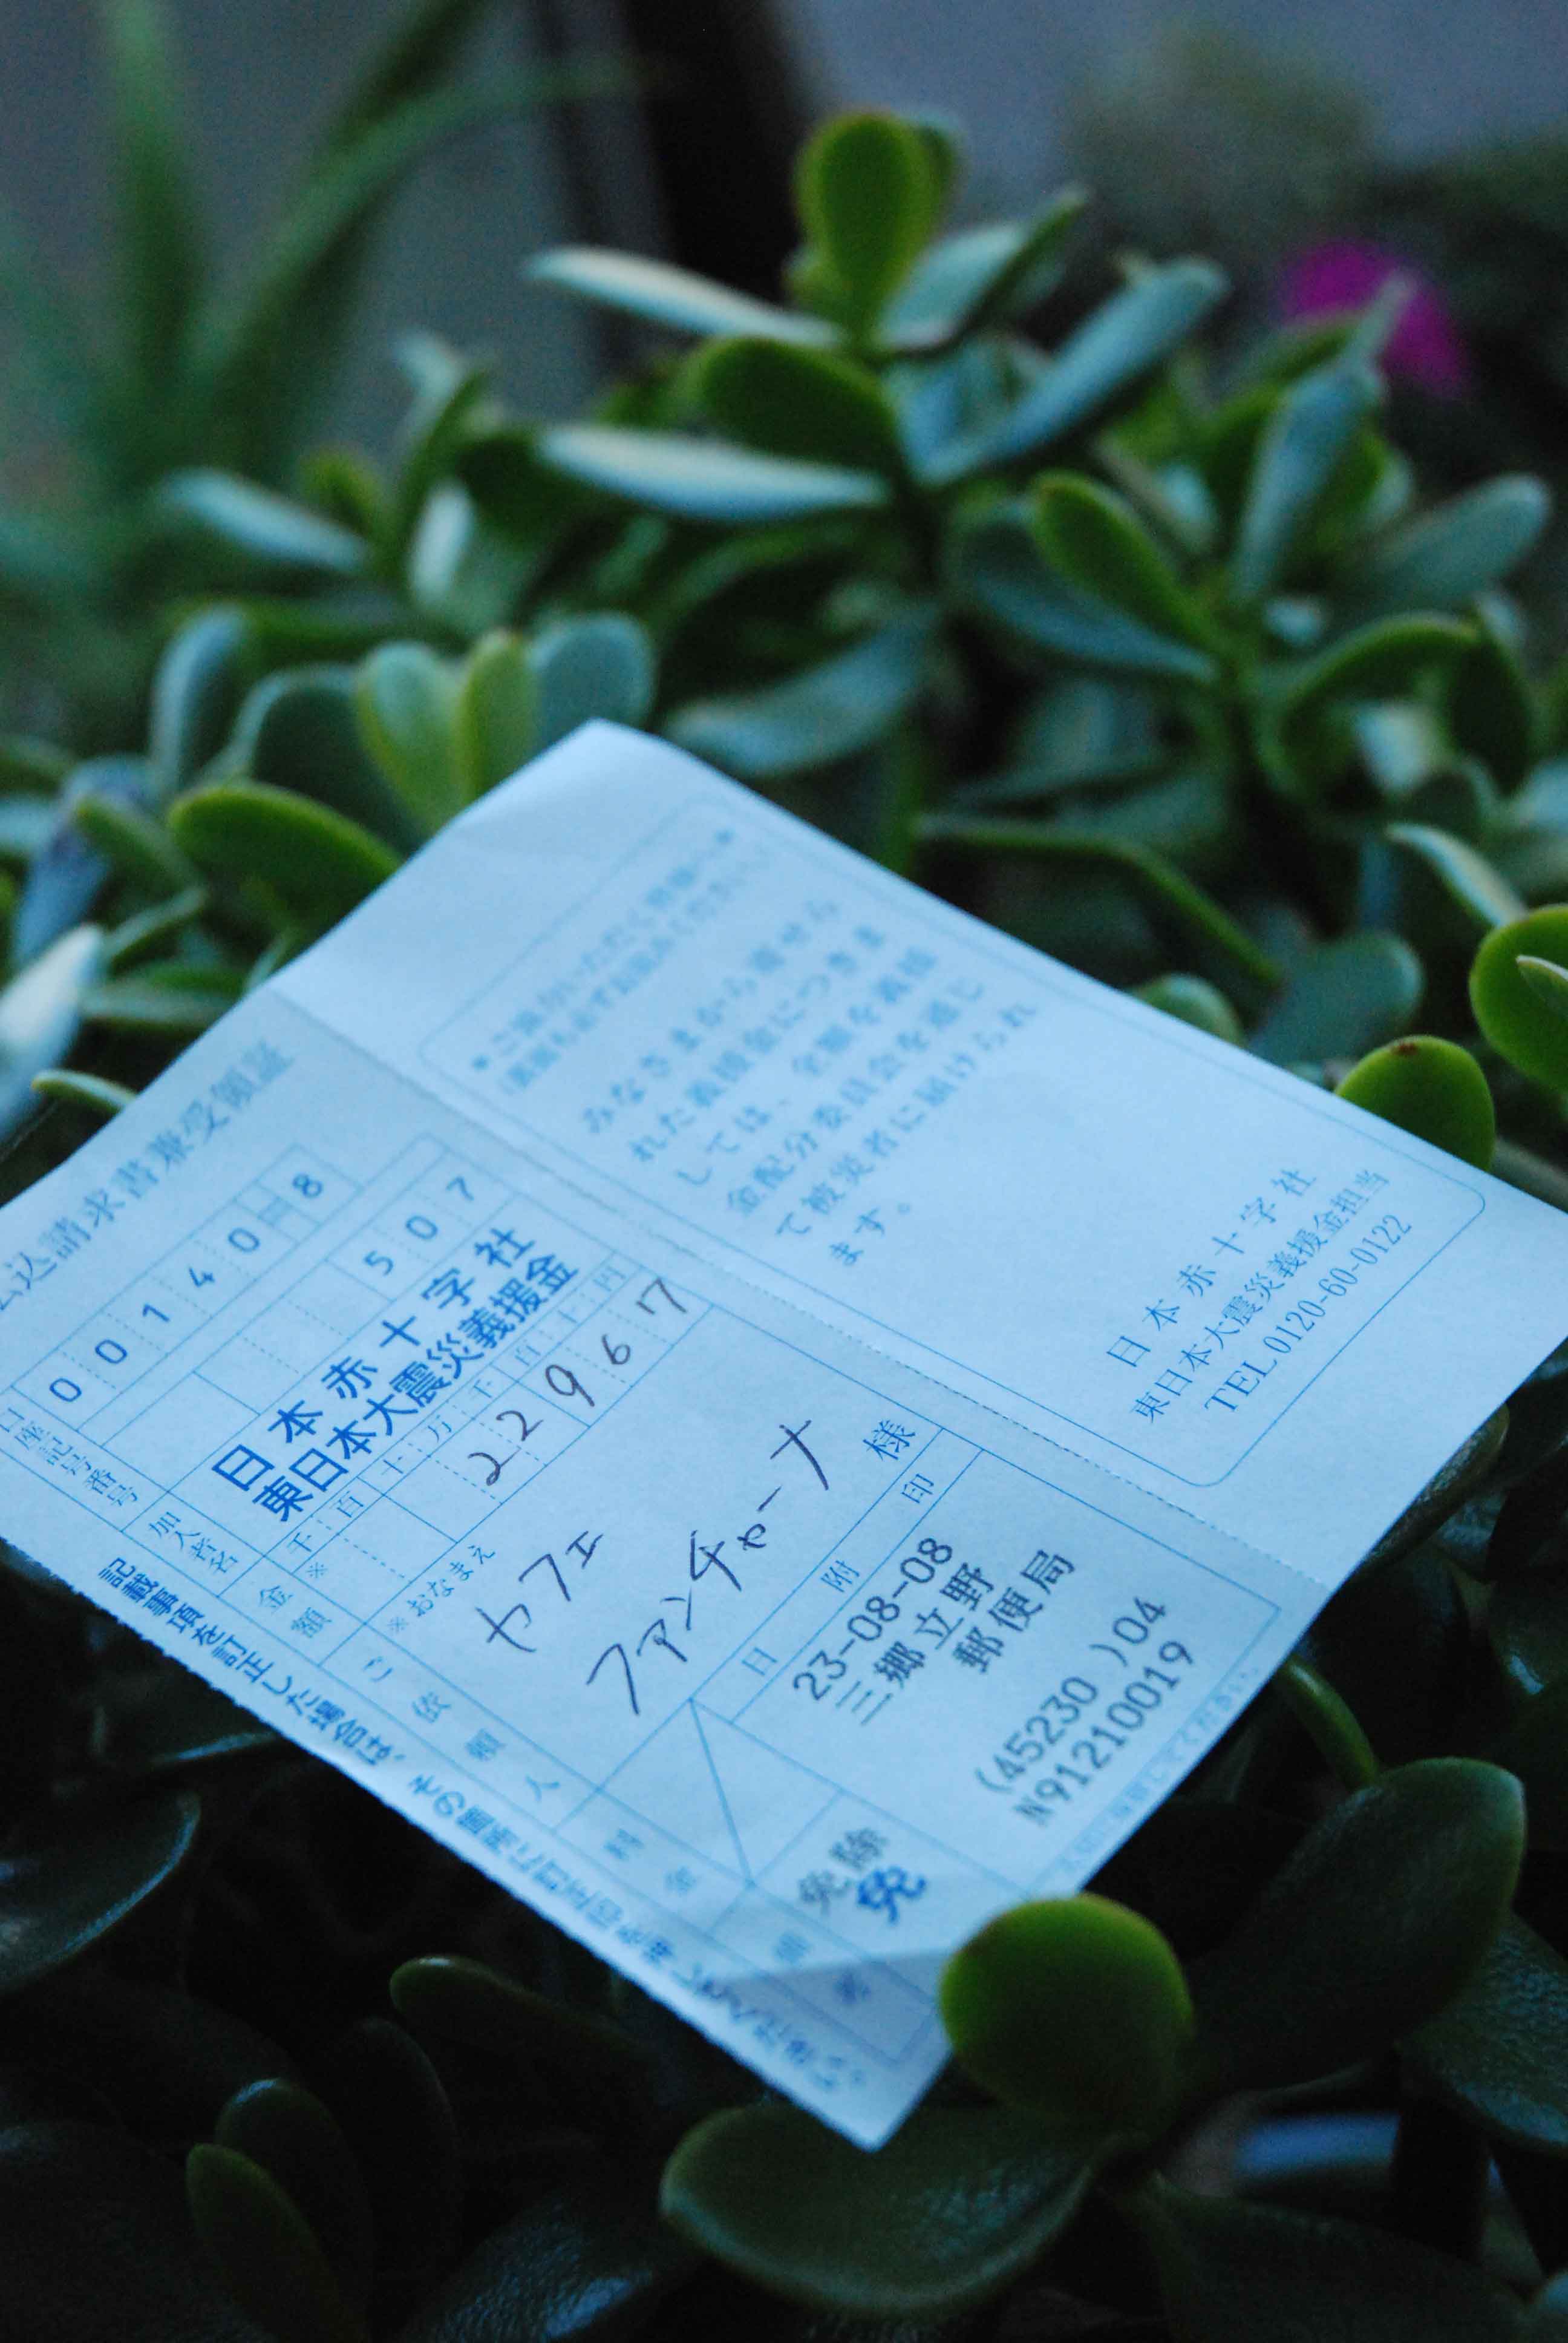 込請求書兼受領証
口座記号番号
00140 8
507
加入者名
日本赤十字社
東日本大震災義援金
金額
千百十万千百十円
※
22967
ご依頼人
※おなまえ
カフェ
ファンチャーナ
様
料金
日附印
23-08-08
三郷立野
郵便局
(45230 )04
N91210019
免除
免
備考
記載事項を訂正した場合は、その箇所に訂正印を押してください。
みなさまから寄せら
れた義援金につきま
しては、全額を義援
金配分委員会を通じ
て被災者に届けられ
ます。
日本赤十字社
東日本大震災義援金担当
TEL 0120-60-0122